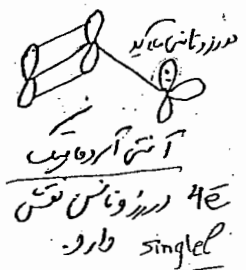 در رزونانس می‌آید
آنتی آروماتیک
4ē در رزونانس نقش
دارد. singlet